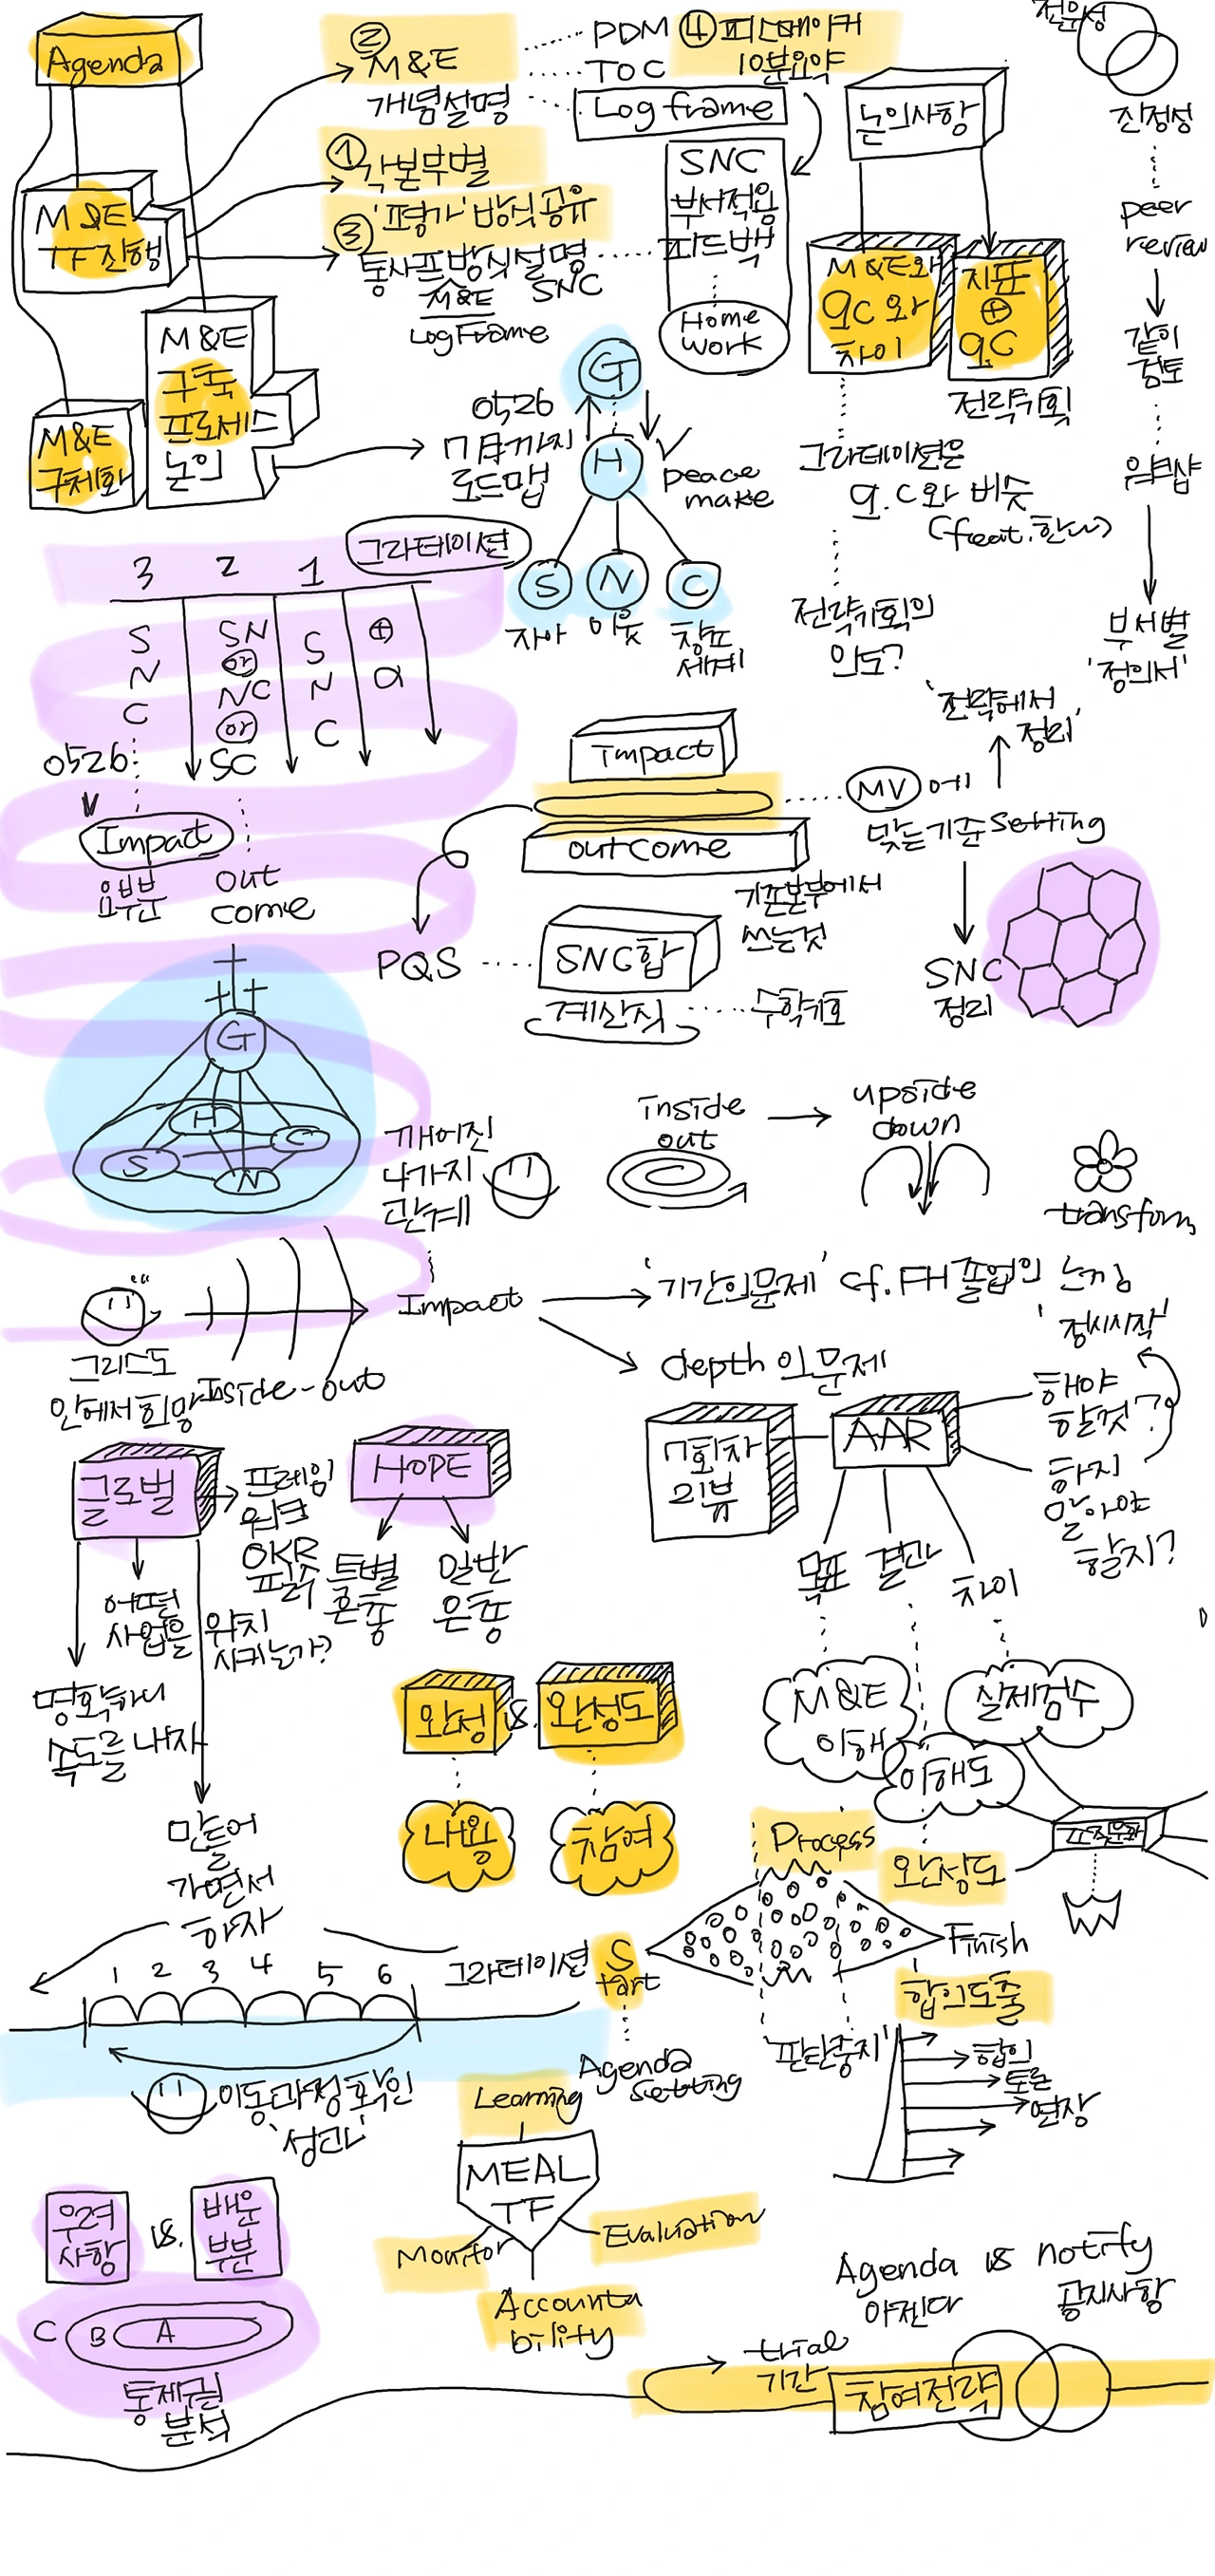 Agenda
② M&E
개념설명
PDM
TOC
Log frame
④ 피스메이커
10분요약
① 각본부별
'평가' 방식공유
③ 통사프방식설명
M&E
Log Frame
SNC
SNC
부서적용
피드백
Home
work
M&E
TF진행
M&E
구축
프로세스
논의
M&E
구체화
0526
7月까지
로드맵
G
H
peace
make
S
N
C
자아
이웃
창조
세계
논의사항
M&E와
q.c와
차이
지표
⊕
q.c
전략기획
그라데이션은
q.c와 비슷
(feat.한나)
전략기획의
의도?
전문성
진정성
peer
review
같이
검토
워크샵
부서별
'정의서'
3 2 1
그라데이션
S
N
C
SN
or
NC
or
SC
S
N
C
⊕
α
0526
Impact
요부분
out
come
Impact
outcome
기존본부에서
쓰는것
MV 에
맞는기준 setting
'전략에서
정리'
SNC
정리
PQS
SNC합
계산식
수학기호
G
H
S
C
N
깨어진
4가지
관계
inside
out
upside
down
transform
그리스도
안에서 희망
Inside-out
Impact
'기간의문제' cf. FH 졸업의 느낌
depth 의 문제
7회차
리뷰
AAR
해야
할것?
'정시시작'
하지
말아야
할지?
목표
결과
차이
글로벌
프레임
워크
OKR
어떤
사업을
위치
시키는가?
명확하니
속도를 내자
만들어
가면서
하자
HOPE
특별
은총
일반
은총
완성
vs.
완성도
내용
참여
M&E
이해
이해도
실제점수
조직문화
Process
완성도
Start
Finish
합의도출
그라데이션
1 2 3 4 5 6
이동과정확인
'성과'
Agenda
setting
'판단중지'
합의
토론
연장
Learning
MEAL
TF
Monitor
Evaluation
Accounta
bility
우려
사항
vs.
배운
부분
C B A
통제권
분석
Agenda vs notify
아젠다
공지사항
trial
기간
참여전략